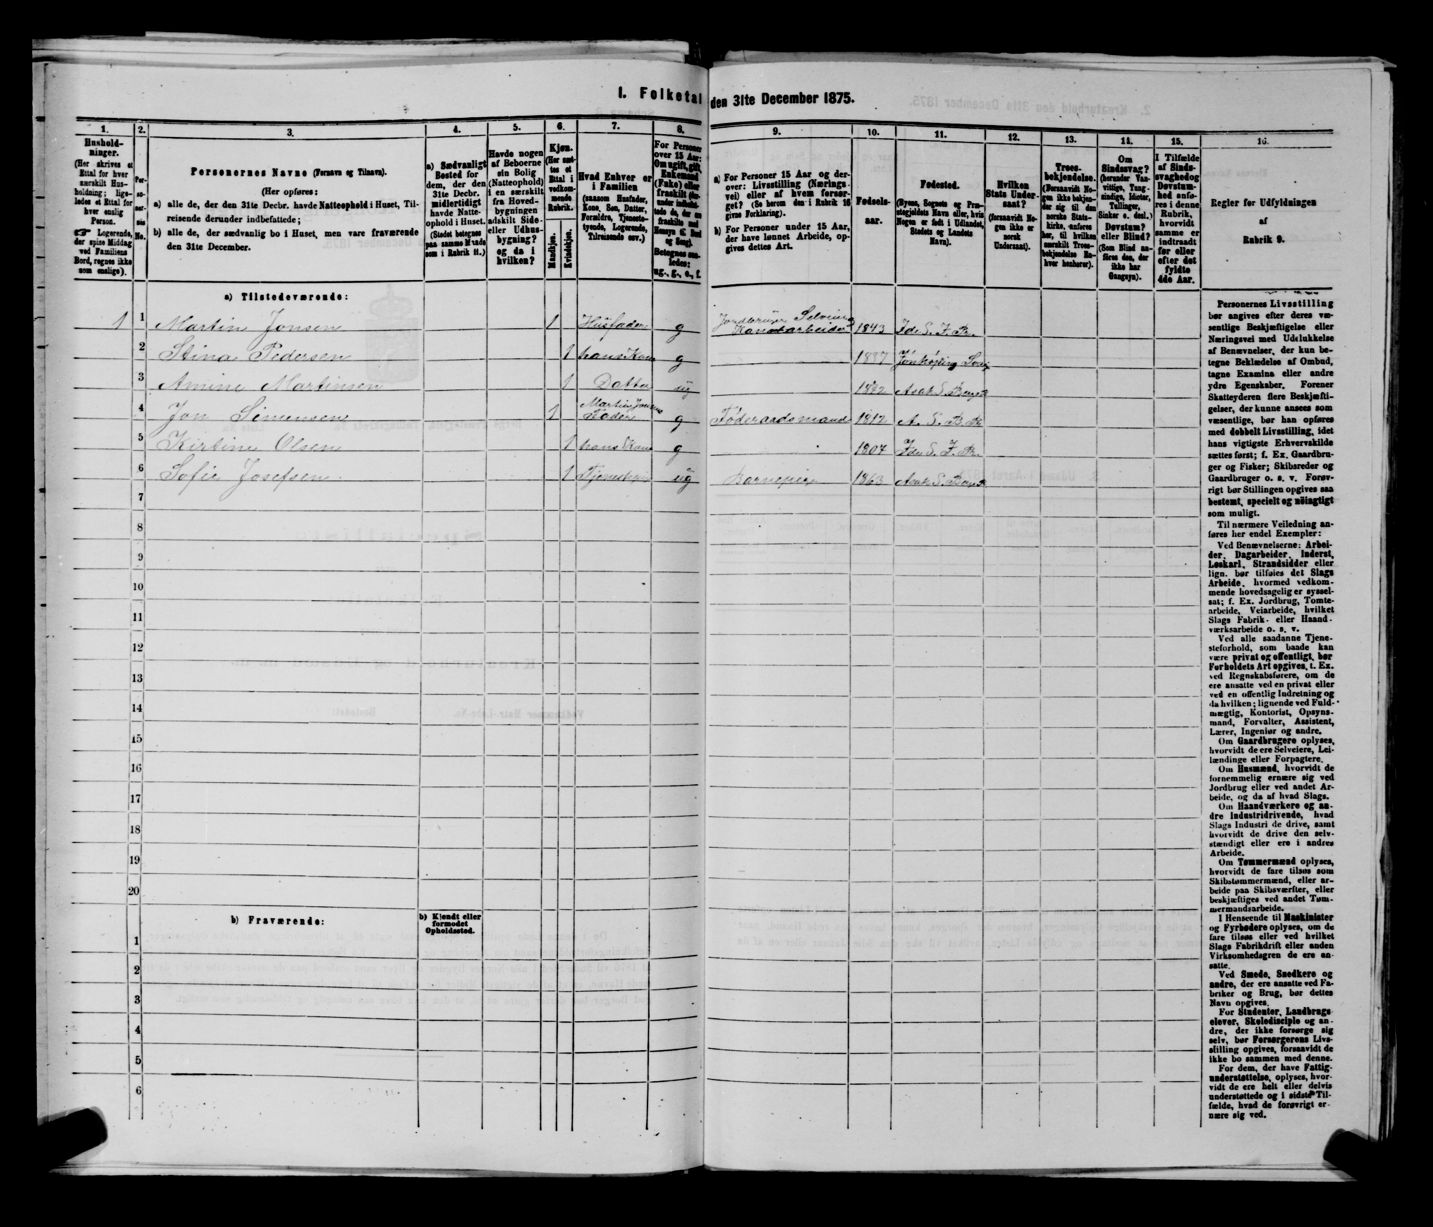 I. Folketal den 31te December 1875.
1. 2. 3. 4. 5. 6. 7. 8. 9. 10. 11. 12. 13. 14. 15. 16.
Hushold-
ninger.
(Her skrives et
Ettal for hver
særskilt Hus-
holdning; lige-
ledes et Ettal for
hver enslig
Person.
☞ Logerende,
der spise Middag
ved Familiens
Bord, regnes ikke
som enslige).
Per-
so-
ner-
nes
No.
Personernes Navne (Fornavn og Tilnavn).
(Her opføres:
a) alle de, der den 31te Decbr. havde Natteophold i Huset, Til-
reisende derunder indbefattede;
b) alle de, der sædvanlig bo i Huset, men vare fraværende
den 31te December.
a) Sædvanligt
Bosted for
dem, der den
31te Decbr.
midlertidigt
havde Natte-
ophold i Huset.
(Stedet betegnes
paa samme Maade
som i Rubrik 11.)
Havde nogen
af Beboerne
sin Bolig
(Natteophold)
i en særskilt
fra Hoved-
bygningen
adskilt Side-
eller Udhus-
bygning?
og da i
hvilken?
Kjøn.
(Her sæt-
tes et
Ettal i
vedkom-
mende
Rubrik.
Mandkjøn.
Kvindekjøn.
Hvad Enhver er
i Familien
(saasom Husfader,
Kone, Søn, Datter,
Forældre, Tjeneste-
tyende, Logerende,
Tilreisende osv.)
For Personer
over 15 Aar:
Om ugift, gift,
Enkemand
(Enke) eller
fraskilt
Betegnes saa-
ledes:
ug., g., e., f.
a) For Personer 15 Aar og der-
over: Livsstilling (Nærings-
vei) eller af hvem forsør-
get? (Se herom den i Rubrik 16
givne Forklaring).
b) For Personer under 15 Aar,
der have lønnet Arbeide, op-
gives dettes Art.
Fødsels-
aar.
Fødested.
(Byens, Sognets og Præ-
stegjeldets Navn eller, hvis
Nogen er født i Udlandet,
Stedets og Landets
Navn).
Hvilken
Stats Under-
saat?
(forsaavidt No-
gen ikke er
norsk
Undersaat).
Troes-
bekjendelse.
(Forsaavidt No-
gen ikke bekjen-
der sig til den
norske Stats-
kirke, anføres
her, til hvilken
særskilt Troes-
bekjendelse En-
hver henhører).
Om
Sindssvag?
(herunder Van-
vittige, Tung-
sindige, Idioter,
Tullinger,
Sinker o. desl.)
Døvstum?
eller Blind?
(Som Blind an-
føres den, der
ikke har
Gangsyn).
I Tilfælde
af Sinds-
svaghed og
Døvstum-
hed anfø-
res i denne
Rubrik,
hvorvidt
samme er
indtraadt
før eller
efter det
fyldte
4de Aar.
Regler for Udfyldningen
af
Rubrik 9.
a) Tilstedeværende:
1 1 Martin Jonsen 1 Husfader g Jordbruger Selveier Kanalarbeider 1843 Ide S. I. Pr.
2 Stina Pedersen 1 hans Kone g 1837 Jönköping
3 Amine Martinsen 1 Datter ug Asak S.
4 Jon Simensen 1 Martin Jonsens Fader g Föderaadsmand 1812 A. S. B. Pr
5 Kirtine Olsen 1 hans Kone g 1807 Ide S. I. Pr.
6 Sofie Josefsen 1 ug Barnepige 1863 Asak S.
7
8
9
10
11
12
13
14
15
16
17
18
19
20
b) Fraværende:
b) Kjendt eller
formodet
Opholdssted.
1
2
3
4
5
6
Personernes Livsstilling
bør angives efter deres væ-
sentlige Beskjæftigelse eller
Næringsvei med Udelukkelse
af Benævnelser, der kun be-
tegne Beklædelse af Ombud,
tagne Examina eller andre
ydre Egenskaber. Forener
Skatteyderen flere Beskjæfti-
gelser, der kunne ansees som
væsentlige, bør han opføres
med dobbelt Livsstilling, idet
hans vigtigste Erhvervskilde
sættes først; f. Ex. Gaardbru-
ger og Fisker; Skibsreder og
Gaardbruger o. s. v. Forøv-
rigt bør Stillingen opgives saa
bestemt, specielt og nøiagtigt
som muligt.
Til nærmere Veiledning an-
føres her endel Exempler:
Ved Benævnelserne: Arbei-
der, Dagarbeider, Inderst,
Løskarl, Strandsidder eller
lign. bør tilføies det Slags
Arbeide, hvormed vedkom-
mende hovedsagelig er syssel-
sat; f. Ex. Jordbrug, Tomte-
arbeide, Veiarbeide, hvilket
Slags Fabrik- eller Haand-
værksarbeide o. s. v.
Ved alle saadanne Tjene-
steforhold, som baade kan
være privat og offentligt, bør
Forholdets Art opgives, t. Ex.
ved Regnskabsførere, om de
ere ansatte ved en privat eller
ved en offentlig Indretning og
da hvilken; lignende ved Fuld-
mægtig, Kontorist, Opsyns-
mand, Forvalter, Assistent,
Lærer, Ingeniør og andre.
Om Gaardbrugere oplyses,
hvorvidt de ere Selveiere, Lei-
lændinge eller Forpagtere.
Om Husmænd, hvorvidt de
fornemmelig ernære sig ved
Jordbrug eller ved andet Ar-
beide, og da af hvad Slags.
Om Haandværkere og an-
dre Industridrivende, hvad
Slags Industri de drive, samt
hvorvidt de drive den selv-
stændigt eller ere i andres
Arbeide.
Om Tømmermænd oplyses,
hvorvidt de fare tilsøs som
Skibstømmermænd, eller ar-
beide paa Skibsværfter, eller
beskjæftiges ved andet Tøm-
mermandsarbeide.
I Henseende til Maskinister
og Fyrbødere oplyses, om de
fare tilsøs eller ved hvilket
Slags Fabrikdrift eller anden
Virksomhedsgren de ere an-
satte.
Ved Smede, Snedkere og
andre, der ere ansatte ved Fa-
briker og Brug, bør dettes
Navn opgives.
For Studenter, Landbrugs-
elever, Skoledisciple og an-
dre, der ikke forsørge sig
selv, bør Forsørgerens Livs-
stilling opgives, forsaavidt de
ikke bo sammen med denne.
For dem, der have Fattig-
understøttelse, oplyses, hvor-
vidt de ere helt eller delvis
understøttede og i sidste Til-
fælde, hvad de forøvrigt er-
nære sig ved.